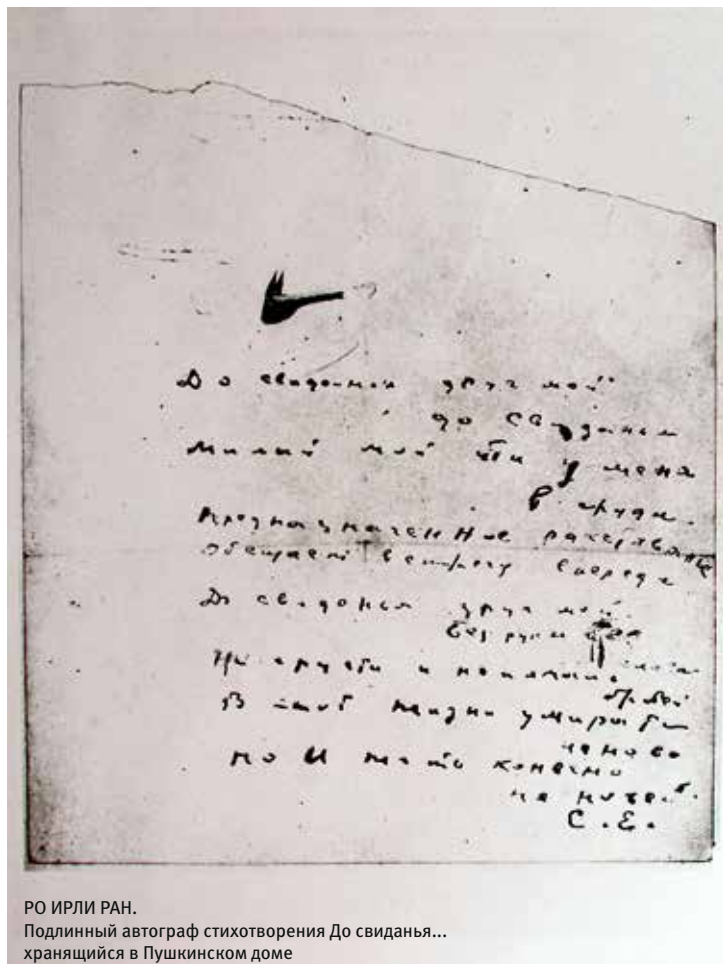 До свиданья друг мой
до свиданья
Милый мой ты у меня
в груди.
Предназначенное расставанье
обещает встречу впереди
До свиданья друг мой
без руки
Не грусти и
бровей
В этой жизни умирать
не ново
но и жить конечно
не новей.
С.Е.
РО ИРЛИ РАН.
Подлинный автограф стихотворения До свиданья...
хранящийся в Пушкинском доме